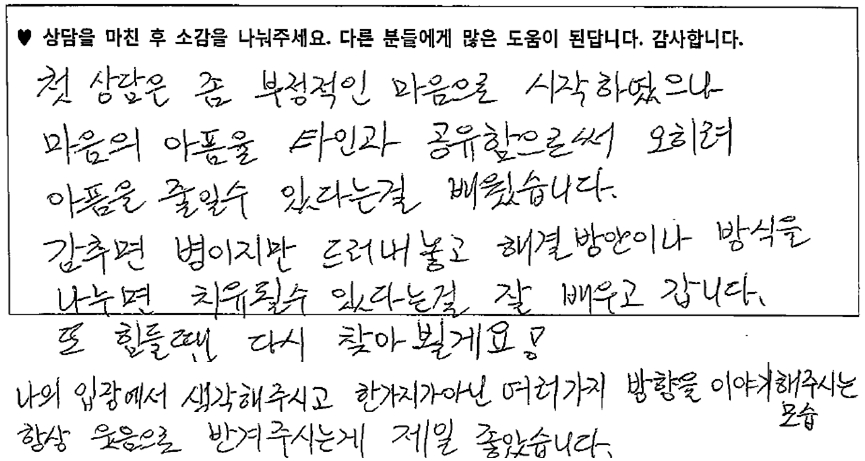 ♥ 상담을 마친 후 소감을 나눠주세요. 다른 분들에게 많은 도움이 된답니다. 감사합니다.
첫 상담은 좀 부정적인 마음으로 시작하였으나
마음의 아픔을 타인과 공유함으로써 오히려
아픔을 줄일수 있다는걸 배웠습니다.
감추면 병이지만 드러내놓고 해결방안이나 방식을
나누면 치유될수 있다는걸 잘 배우고 갑니다.
또 힘들땐 다시 찾아뵐게요!
나의 입장에서 생각해주시고 한가지가아닌 여러가지 방향을 이야기해주시는
모습
항상 웃음으로 반겨주시는게 제일 좋았습니다.